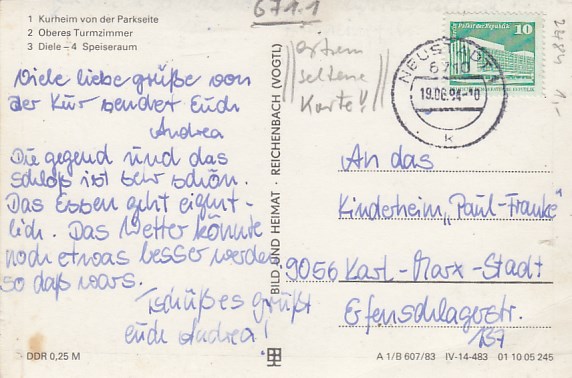 671.1
1 Kurheim von der Parkseite
2 Oberes Turmzimmer
3 Diele – 4 Speiseraum
extrem
seltene
Karte!!
2484
1,-
Palast der Republik 10
NEUSTADT
6710
19.06.84-10
k
Viele liebe grüße von
der Kur sendet Euch
Andrea
Die gegend und das
schloß ist sehr schön.
Das Essen geht eigent-
lich. Das Wetter könnte
noch etwas besser werden
so daß wars.
Tschüßes grüßt
euch Andrea!
BILD UND HEIMAT · REICHENBACH (VOGTL)
An das
Kinderheim „Paul-Franke"
9056 Karl-Marx-Stadt
Erfenschlagerstr.
137
DDR 0,25 M
A 1/B 607/83 IV-14-483 01 10 05 245